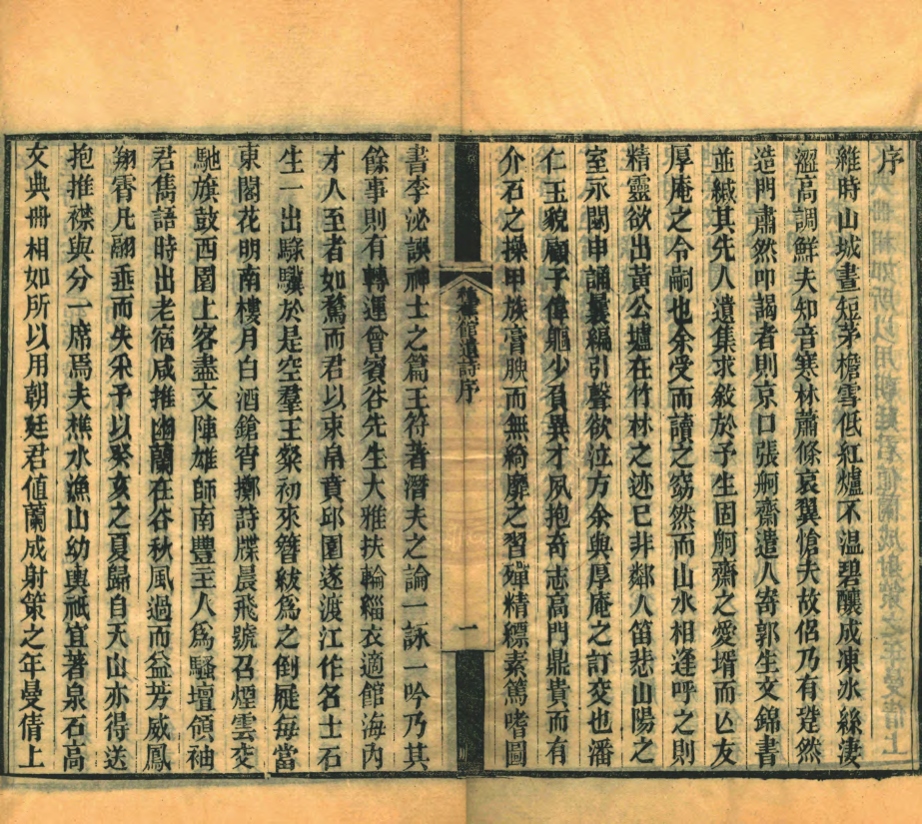 序
維時山城晝短茅檐雪低紅爐不溫碧釀成凍冰絲淒
澀高調鮮夫知音寒林蕭條哀翼愴夫故侶乃有跫然
造門肅然叩謁者則京口張舸齋遣人寄郭生文錦書
並緘其先人遺集求敘於予生固舸齋之愛壻而亾友
厚庵之令嗣也余受而讀之窈然而山水相逢呼之則
精靈欲出黃公壚在竹林之迹已非鄰人笛悲山陽之
室永閟申誦曩編引聲欲泣方余與厚庵之訂交也潘
仁玉貌顧子偉軀少負異才夙抱奇志高門鼎貴而有
介石之操甲族膏腴而無綺靡之習殫精縹素篤嗜圖
館遺詩序
一
書李泌談神士之篇王符著潛夫之論一詠一吟乃其
餘事則有轉運曾賓谷先生大雅扶輪緇衣適館海內
才人至者如鶩而君以束帛賁邱園遂渡江作名士石
生一出騄驥於是空羣王粲初來簪紱爲之倒屣每當
東閣花明南樓月白酒鎗宵擲詩牒晨飛號召煙雲交
馳旗鼓西園上客盡文陣雄師南豐主人爲騷壇領袖
君雋語時出老宿咸推幽蘭在谷秋風過而益芳威鳳
翔霄凡翮垂而失采予以癸亥之夏歸自天山亦得送
抱推襟與分一席焉夫樵水漁山幼輿祇宜著泉石高
文典冊相如所以用朝廷君値蘭成射策之年曼倩上